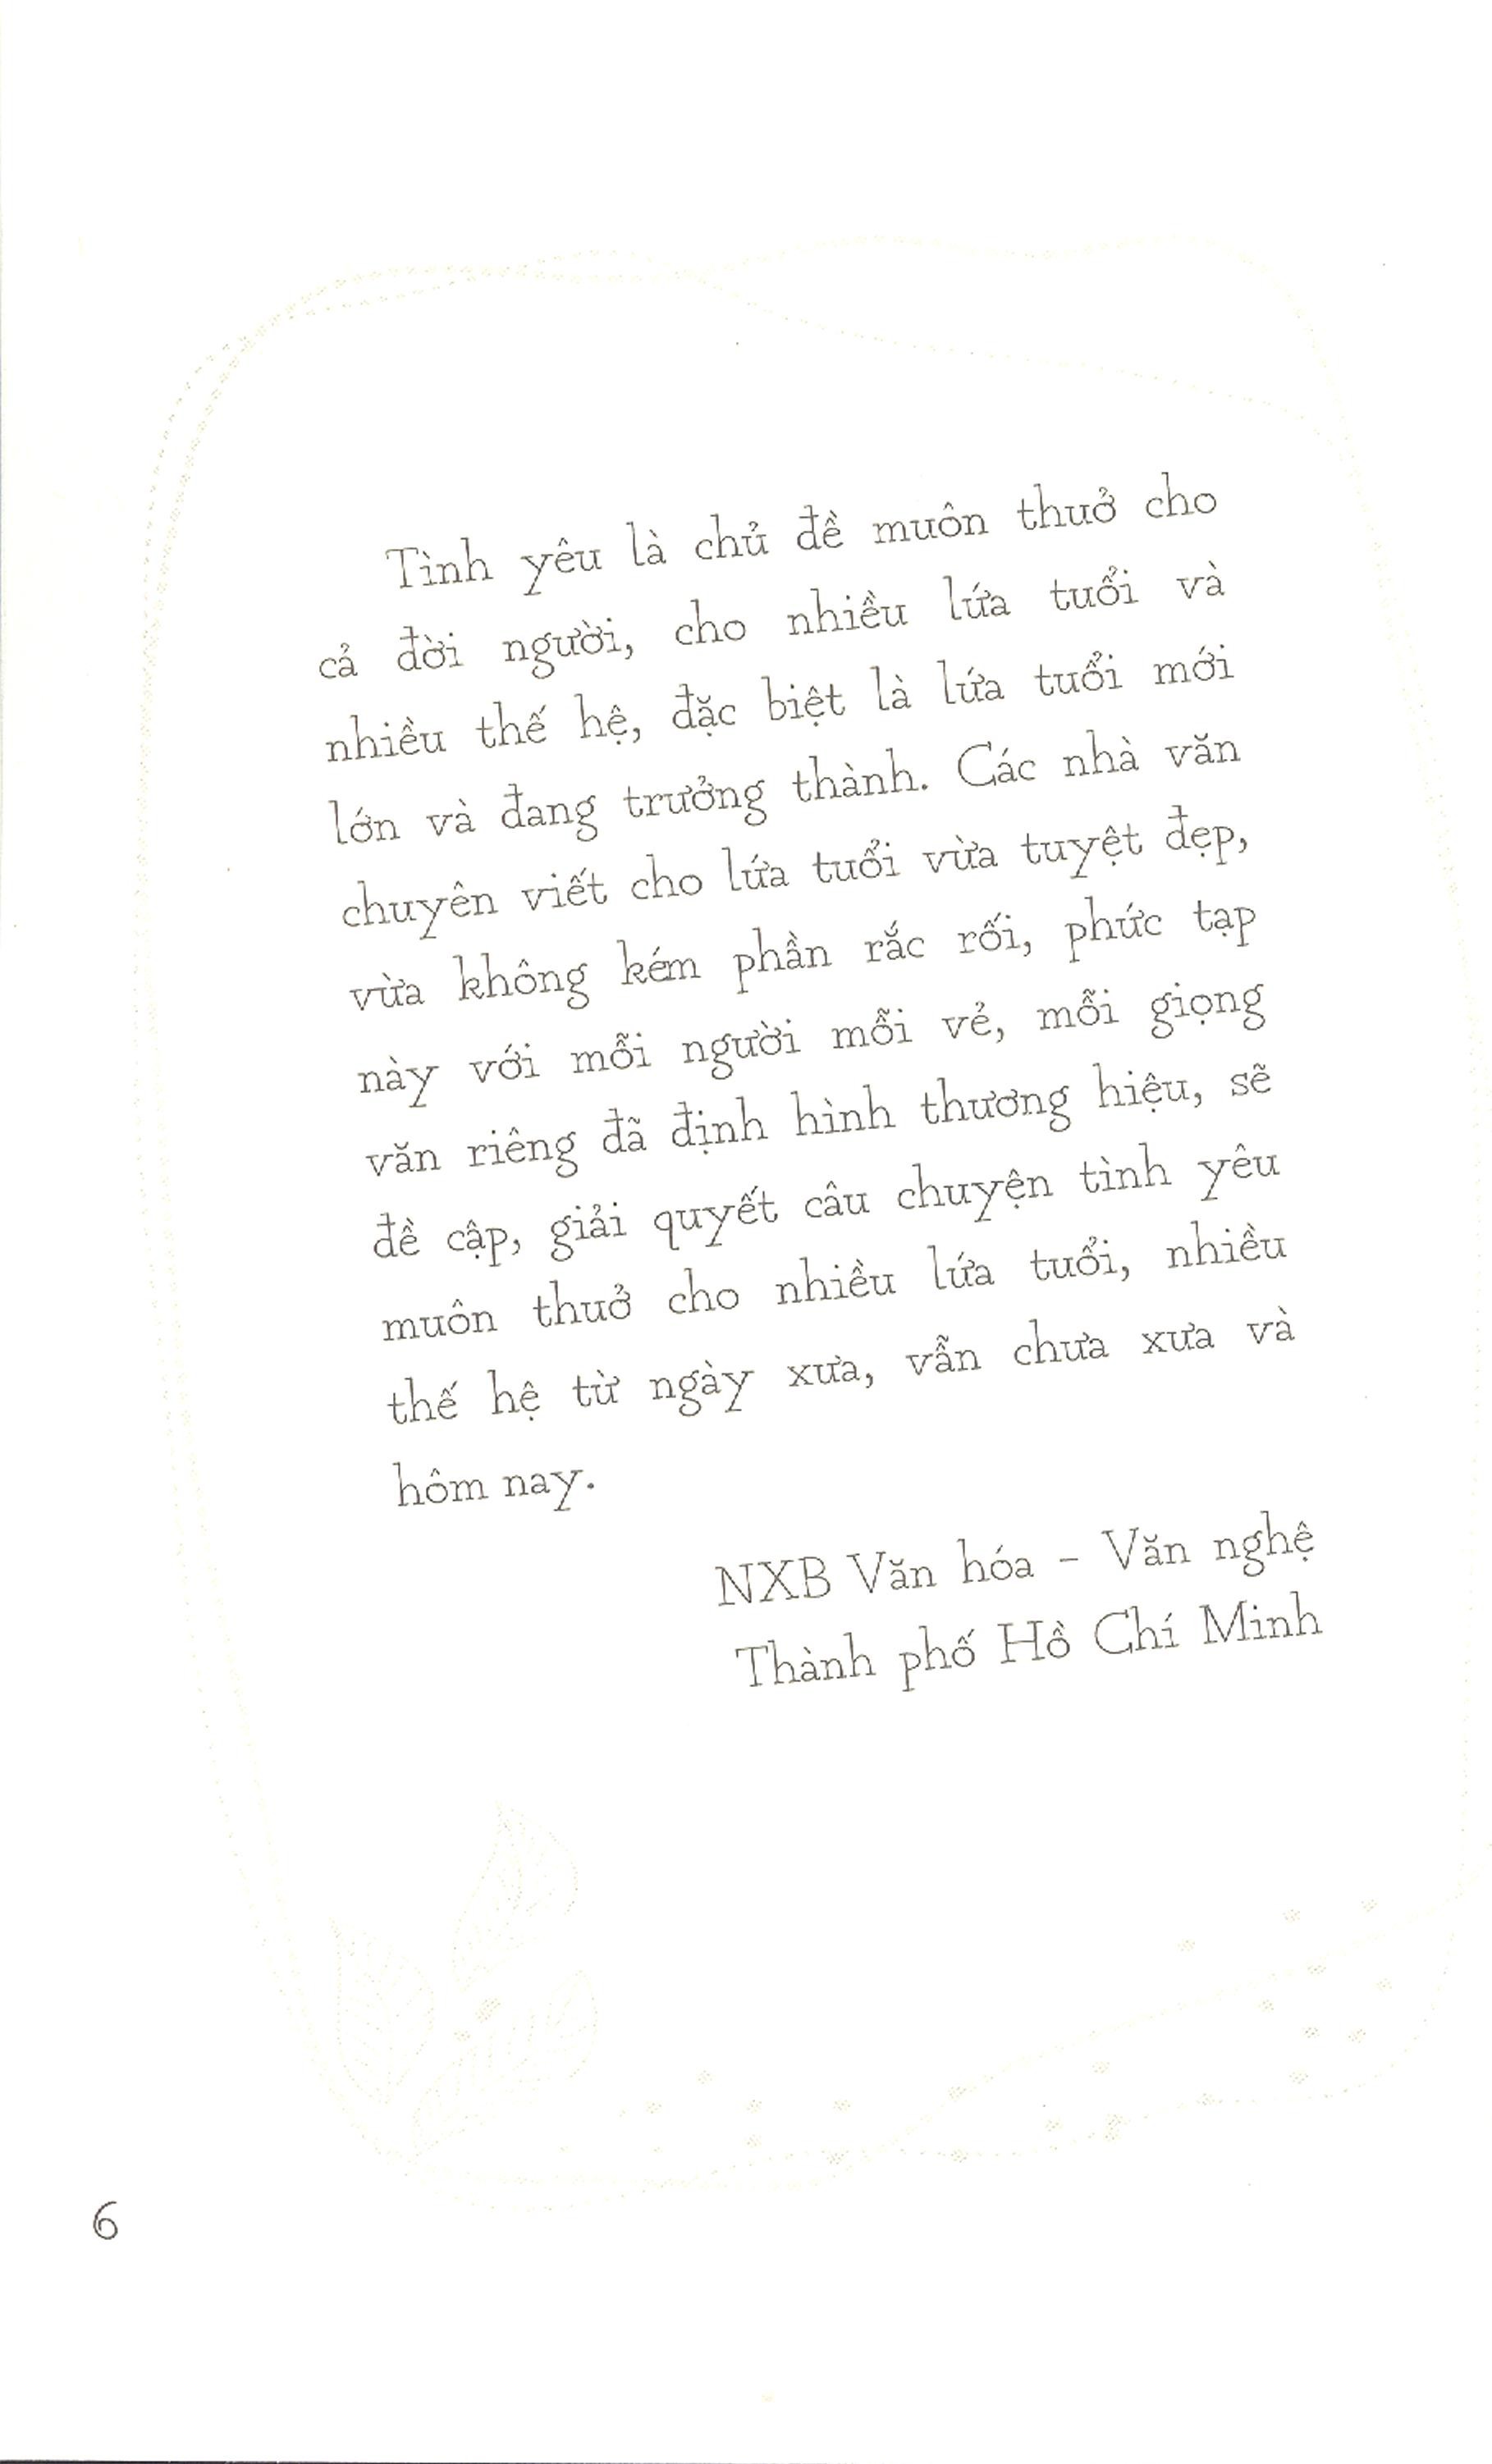 Tình yêu là chủ đề muôn thuở cho
cả đời người, cho nhiều lứa tuổi và
nhiều thế hệ, đặc biệt là lứa tuổi mới
lớn và đang trưởng thành. Các nhà văn
chuyên viết cho lứa tuổi vừa tuyệt đẹp,
vừa không kém phần rắc rối, phức tạp
này với mỗi người mỗi vẻ, mỗi giọng
văn riêng đã định hình thương hiệu, sẽ
đề cập, giải quyết câu chuyện tình yêu
muôn thuở cho nhiều lứa tuổi, nhiều
thế hệ từ ngày xưa, vẫn chưa xưa và
hôm nay.
NXB Văn hóa - Văn nghệ
Thành phố Hồ Chí Minh
6